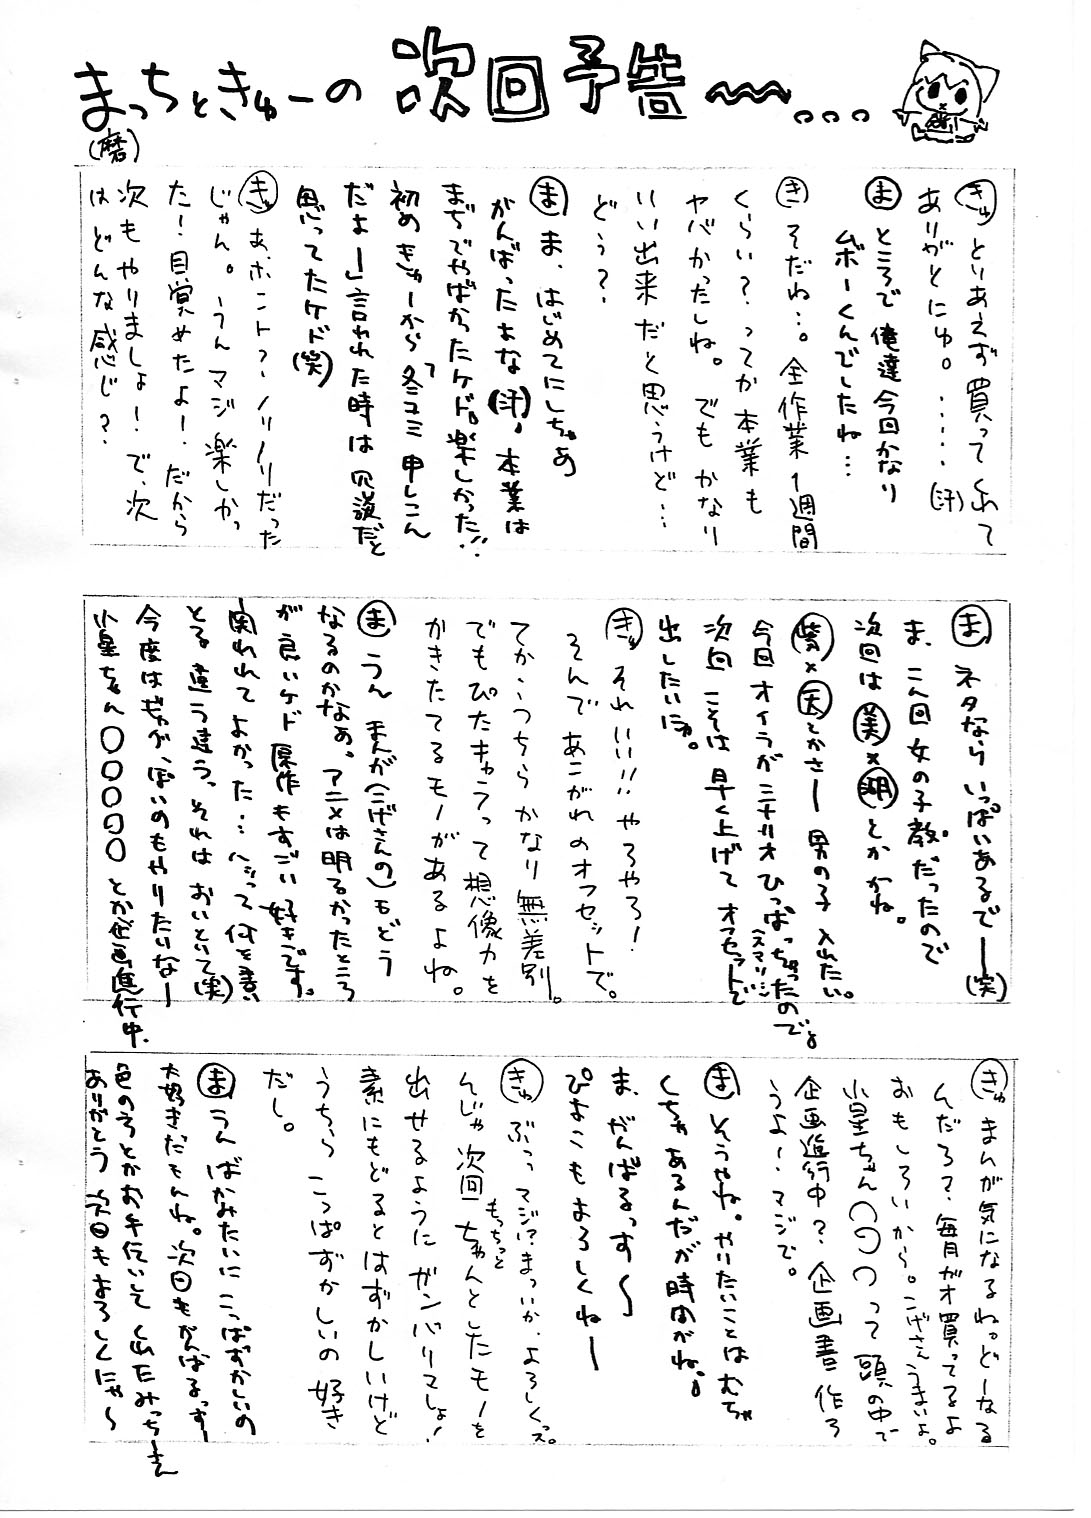 まっちときゅーの 次回予告〜〜...
(磨)
きゅ とりあえず買ってくれて
ありがとにゅ。……(汗)
ま ところで俺達今回かなり
ムボーくんでしたね…
き そだね…。全作業1週間
くらい?ってか本業も
ヤバかったしね。でもかなり
いい出来だと思うけど…
どう?
ま ま、はじめてにしちゃあ
がんばったよな(汗)、本業は
まぢでやばかったケド。楽しかった!!
初めきゅーから「冬コミ申しこん
だよー」言われた時は冗談だと
思ってたケド(笑)
きゅ あ、ホント?ノリノリだった
じゃん。うんマジ楽しかっ
たー!目覚めたよー。だから
次もやりましょー!で、次
はどんな感じ?
ま ネタならいっぱいあるでー(笑)
ま、こん回女の子教だったので
次回は美×湖とかかね。
紫×天とかさー男の子入れたい。
今回オイラがミナサオひっぱっちゃったので。
次回こそは早く上げてオフセットで
出したいにゅ。
きゅ それいい!!やろやろ!
そんであこがれのオフセットで。
てか、うちらかなり無差別。
でもぴたキャラって想像力を
かきたてるモノがあるよね。
ま うん まんが(こげさんの)もどう
なるのかなぁ。アニメは明るかったところ
が良いケド原作もすごい好きです。
実れれてよかった…へって何を書い
とる違う違う。それはおいといて(笑)
今度はギャグっぽいのもやりたいなー
小星ちゃん○○○○○とか企画進行中。
きゅ まんが気になるね。どーなる
んだろ?毎月ガオ買ってるよ
おもしろいから。こげさんうまいよ。
小星ちゃん○○○って頭の中で
企画進行中?企画書作ろ
うよー、マジで。
ま そうやね。やりたいことはむちゃ
くちゃあるんだが時間がね。
ま、がんばるっす〜
ぴよこもよろしくねー
きゅ ぶっっマジ!?まっいか、よろしくっス。
んじゃ次回もっちっとちゃんとしたモノを
出せるようにガンバリマしょ!
素にもどるとはずかしいけど
うちらこっぱずかしいの好き
だし。
ま うん ばかみたいにこっぱずかしいの
大好きだもんね。次回もがんばるっすー
色のろとかお手伝いしてくれたみっちーさん
ありがとう 次回もよろしくにゃ〜